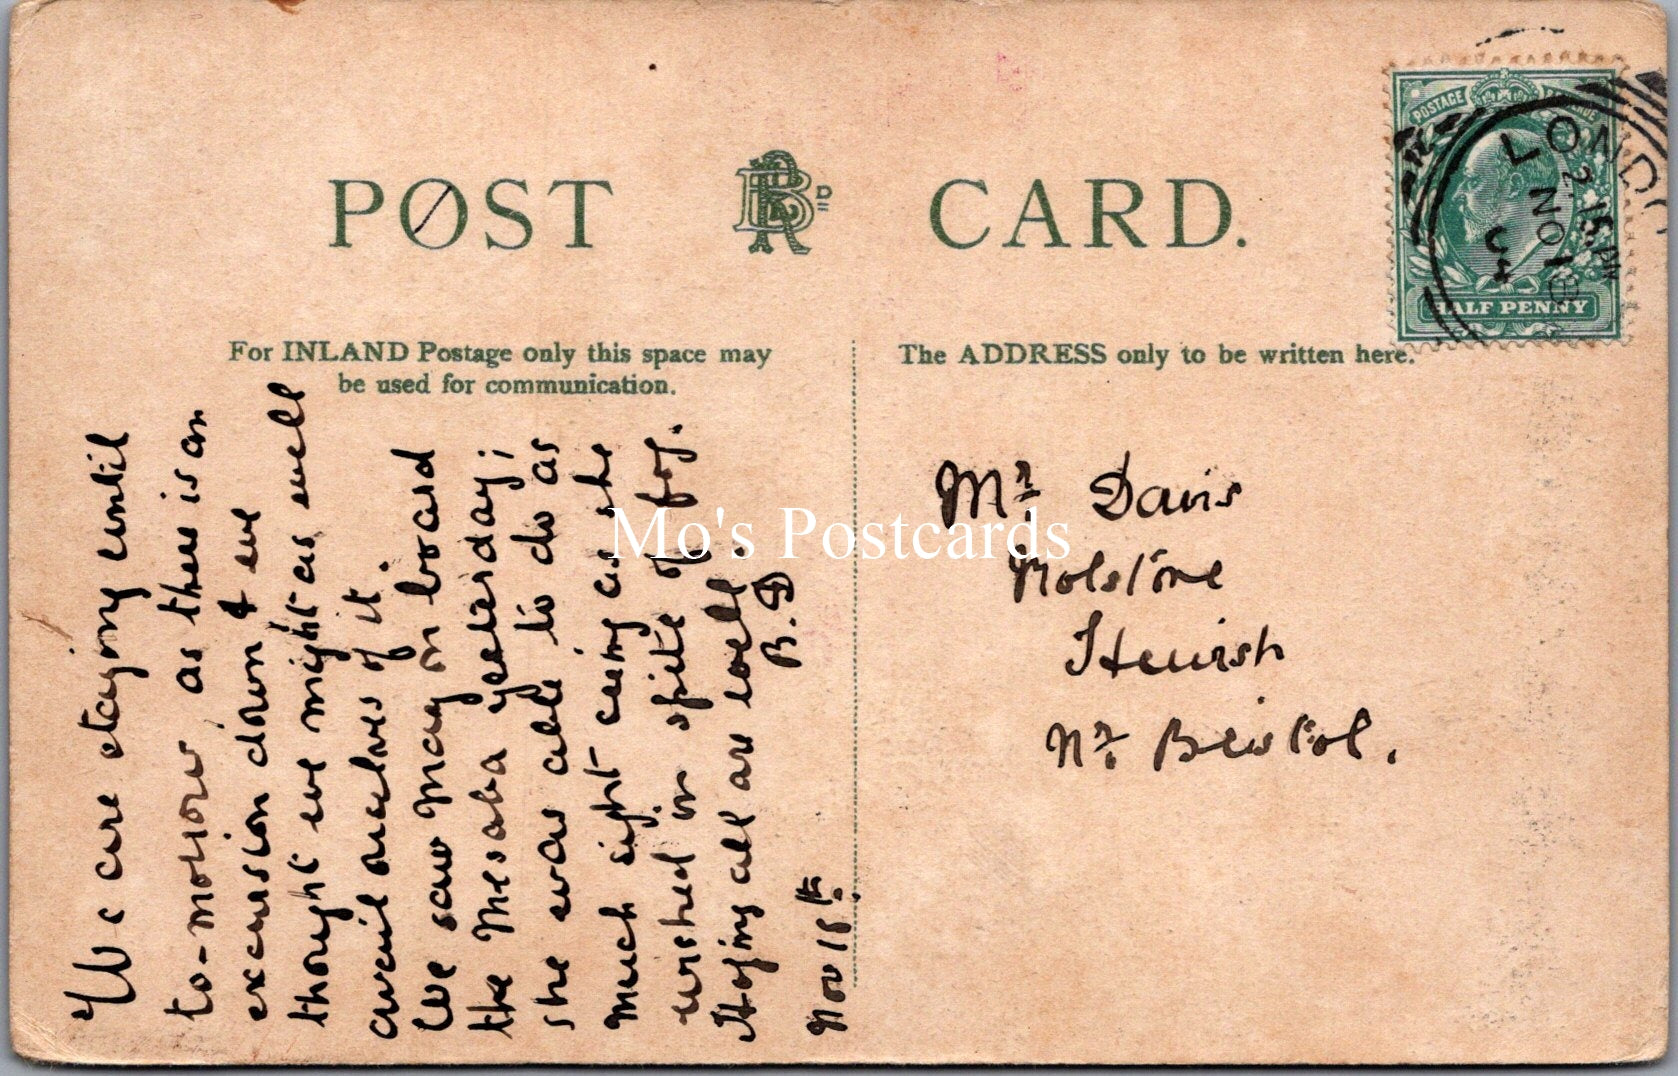 POST CARD.
For INLAND Postage only this space may
be used for communication.
The ADDRESS only to be written here.
POSTAGE
HALF PENNY
LONDO
2 15 PM
NO 1
We are staying until
to-morrow as there is an
excursion down & we
thought we might as well
avail ourselves of it.
We saw May on board
the Mesaba yesterday;
she was able to do as
much sight seeing as she
wished in spite of fog.
Hoping all are well
B.D
Nov 18th.
Mr Davis
Holstone
Hewish
Nr Bristol.
Mo's Postcards